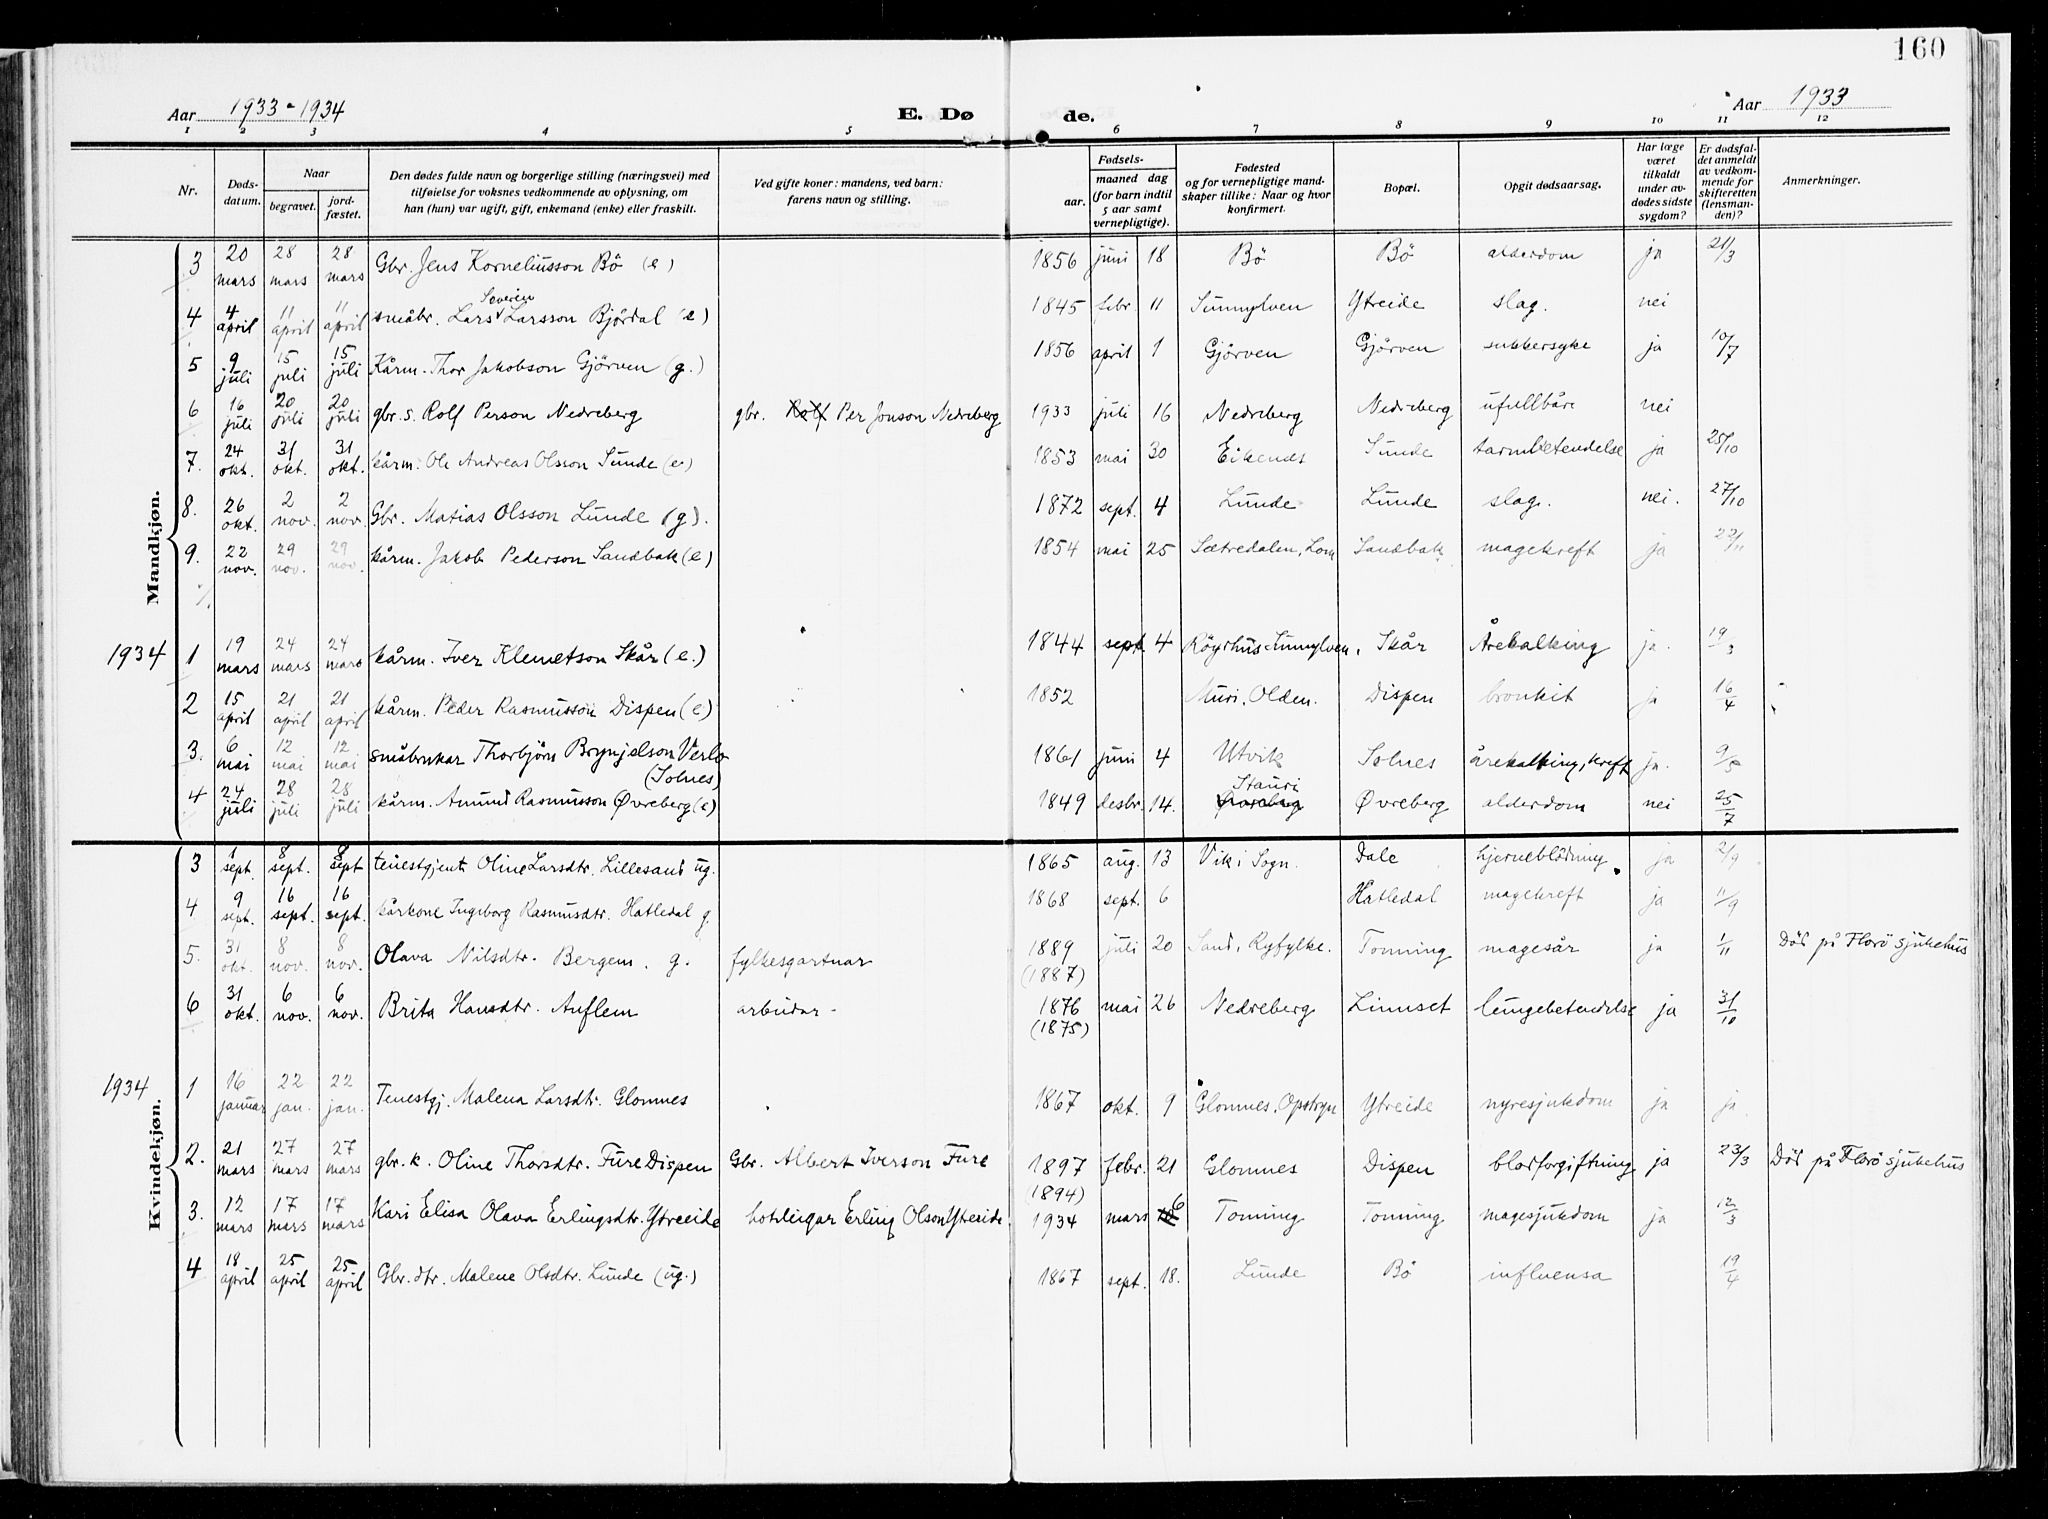 160
Aar 1933-1934
E. Døde.
Aar 1933
1 2 3 4 5 6 7 8 9 10 11 12
Nr.
Døds-datum.
Naar
begravet.
jord-fæstet.
Den dødes fulde navn og borgerlige stilling (næringsvei) med
tilføielse for voksnes vedkommende av oplysning, om
han (hun) var ugift, gift, enkemand (enke) eller fraskilt.
Ved gifte koner: mandens, ved barn:
farens navn og stilling.
Fødsels-
aar.
maaned dag
(for barn indtil
5 aar samt
vernepligtige).
Fødested
og for vernepligtige mand-
skaper tillike: Naar og hvor
konfirmert.
Bopæl.
Opgit dødsaarsag.
Har læge
været
tilkaldt
under av-
dødes sidste
sygdom?
Er dødsfal-
det anmeldt
av vedkom-
mende for
skifteretten
(lensman-
den)?
Anmerkninger.
Mandkjøn.
3 20 mars 28 mars 28 mars Gbr. Jens Korneliusson Bö (e) 1856 juni 18 Bö Bö alderdom ja 21/3
4 4 april 11 april 11 april småbr. Lars Severin Larsson Bjørdal (e) 1845 febr 11 Sunnylven Ytreide slag. nei
5 9 juli 15 juli 15 juli Kårm. Thor Jakobson Gjörven (g.) 1856 april 1 Gjörven Gjörven sukkersyke ja 10/7
6 16 juli 20 juli 20 juli gbr. s. Rolf Person Nedreberg gbr. Rolf Per Jonson Nedreberg 1933 juli 16 Nedreberg Nedreberg ufullbåre nei
7. 24 okt. 31 okt. 31 okt. kårm. Ole Andreas Olsson Sunde (e) 1853 mai 30 Eikenes Sunde tarmbetendelse ja 25/10
8. 26 okt. 2 nov. 2 nov. Gbr. Matias Olsson Lunde (g). 1872 sept. 4 Lunde Lunde slag. nei. 27/10
9. 22 nov. 29 nov. 29 nov. kårm. Jakob Pederson Sandbak (e) 1854 mai 25 Sætredalen, Lom Sandbak magekreft ja 22/11
1934 1 19 mars 24 mars 24 mars kårm. Iver Klemetson Skår (e.) 1844 sept 4 Röyrhus Sunnylven. Skår Årekalking ja. 19/3
2 15 april 21 april 21 april kårm. Peder Rasmusson Dispen (e) 1852 Muri, Olden. Dispen bronkit ja 16/4
3. 6 mai 12 mai 12 mai småbrukar Thorbjörn Brynjelson Verlo (Solnes) 1861 juni 4 Utvik Solnes årekalking, kreft ja. 9/5
4 24 juli 28 juli 28 juli kårm. Amund Rasmusson Øvreberg (e) 1849 desbr. 14. Stauri Øvreberg Øvreberg alderdom nei 25/7
Kvindekjøn.
3 1 sept. 8 sept. 8 sept tenestgjenta Oline Larsdtr. Lillesand ug. 1865 aug. 13 Vik i Sogn. Dale hjerneblödning ja 2/9
4 9 sept. 16 sept. 16 sept. kårkone Ingeborg Rasmusdtr. Hatledal g. 1868 sept. 6 Hatledal magekreft ja 11/9
5. 31 okt. 8 nov. 8 nov. Olava Nilsdtr. Bergem. g. fylkesgartnar 1889 (1887) juli 20 Sand, Ryfylke. Tonning magesår ja 1/11 Död på Florö sjukehus
6 31 okt. 6 nov. 6 nov. Brita Hansdtr. Auflem arbeidar 1876 (1875) mai 26 Nedreberg Linnset lungebetendelse ja 31/10
1934 1 16 januar 22 jan. 22 jan. Tenestgj. Malena Larsdtr. Glomnes 1867 okt. 9 Glomnes, Opstryn Ytreide nyresjukdom ja ja
2. 21 mars 27 mars 27 mars gbr. k. Oline Thorsdtr. Fure Dispen Gbr. Albert Iverson Fure 1897 (1894) febr. 21 Glomnes Dispen blodforgiftning ja 23/3 Död på Florö sjukehus
3. 12 mars 17 mars 17 mars Kari Elisa Olava Erlingsdtr. Ytreeide hoteleigar Erling Olson Ytreeide. 1934 mars 6 Tonning Tonning magesjukdom ja 12/3
4 18 april 25 april 25 april Gbr. dtr. Malene Olsdtr. Lunde (ug.) 1867 sept. 18. Lunde Bö influensa 19/4